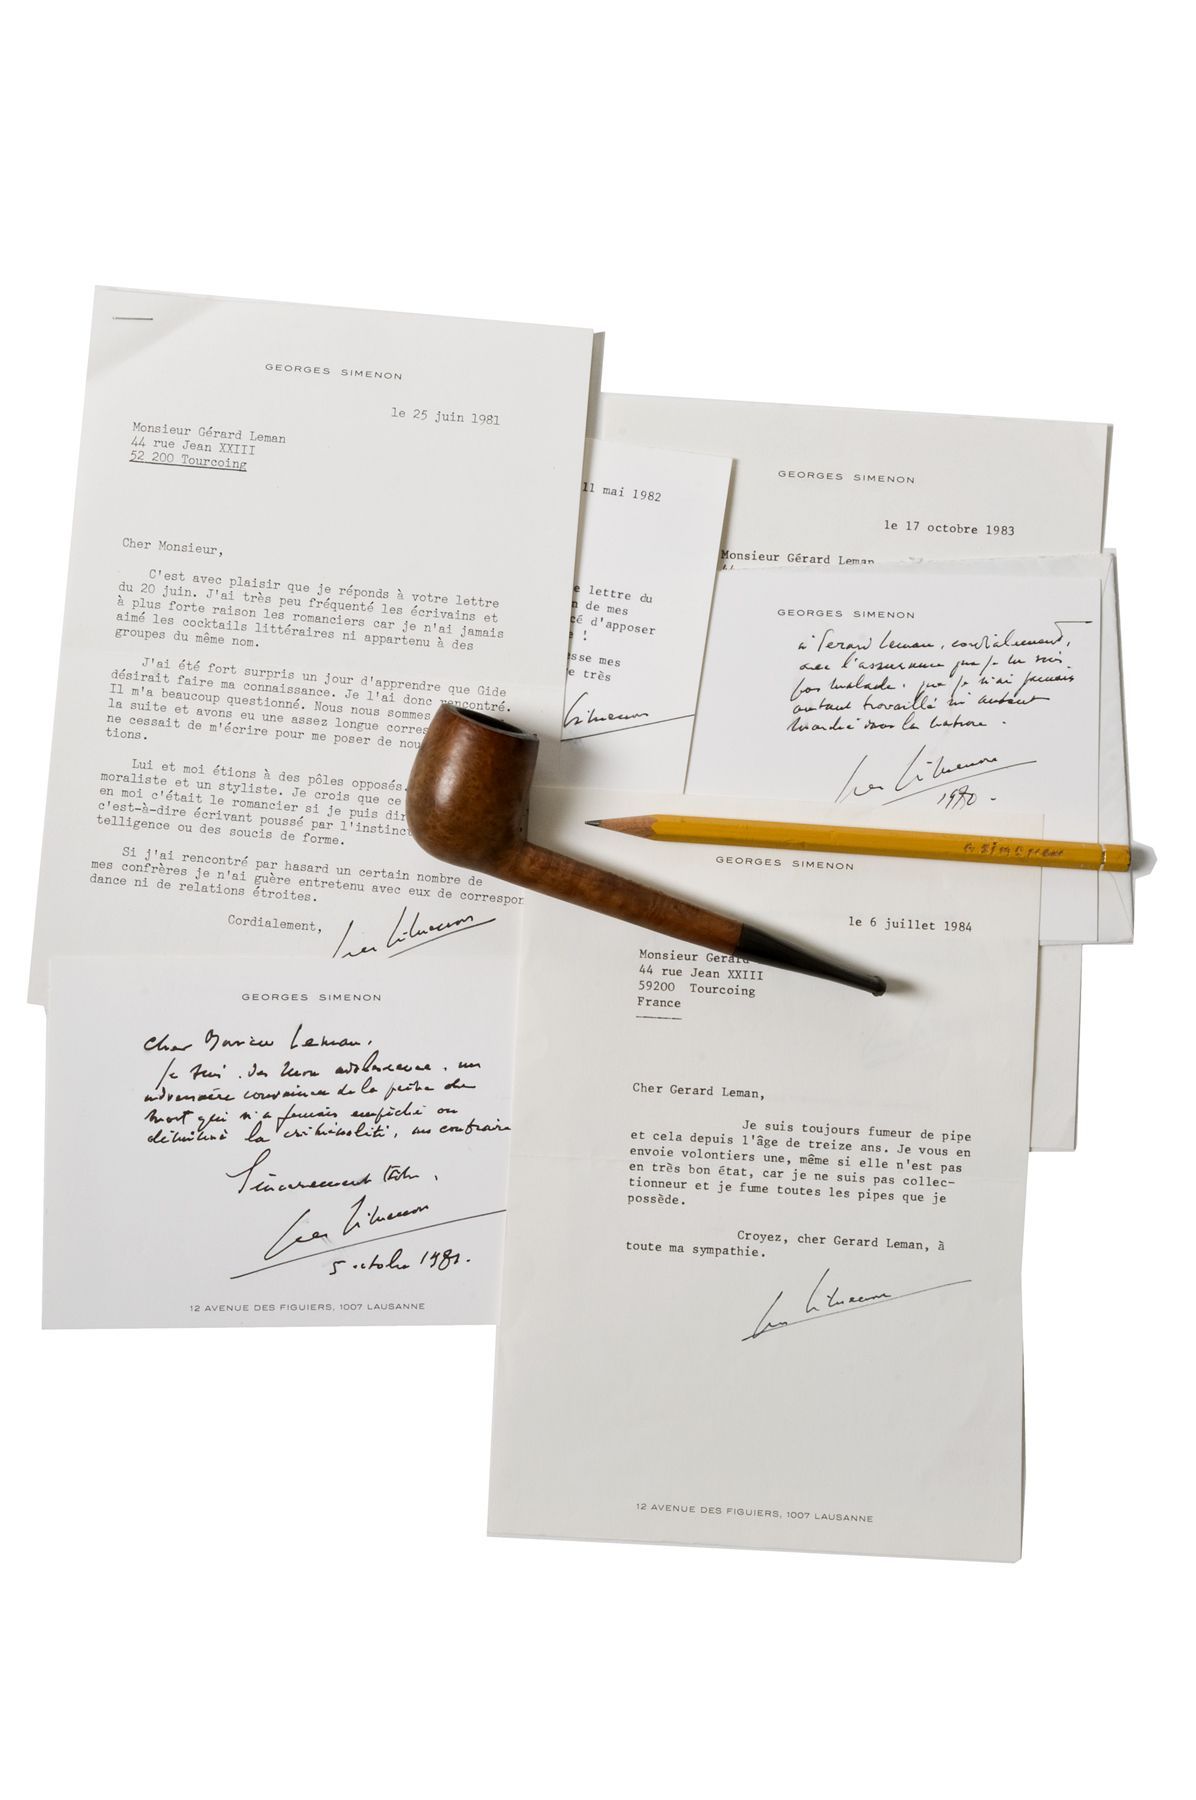 GEORGES SIMENON
le 25 juin 1981
Monsieur Gérard Leman
44 rue Jean XXIII
52 200 Tourcoing
Cher Monsieur,
C'est avec plaisir que je réponds à votre lettre
du 20 juin. J'ai très peu fréquenté les écrivains et
à plus forte raison les romanciers car je n'ai jamais
aimé les cocktails littéraires ni appartenu à des
groupes du même nom.
J'ai été fort surpris un jour d'apprendre que Gide
désirait faire ma connaissance. Je l'ai donc rencontré.
Il m'a beaucoup questionné. Nous nous sommes
la suite et avons eu une assez longue corres
ne cessait de m'écrire pour me poser de nou
tions.
Lui et moi étions à des pôles opposés.
moraliste et un styliste. Je crois que ce
en moi c'était le romancier si je puis dir
c'est-à-dire écrivant poussé par l'instinc
telligence ou des soucis de forme.
Si j'ai rencontré par hasard un certain nombre de
mes confrères je n'ai guère entretenu avec eux de correspon
dance ni de relations étroites.
Cordialement,
11 mai 1982
e lettre du
n de mes
cé d'apposer
e !
sse mes
e très
Simenon
GEORGES SIMENON
le 17 octobre 1983
Monsieur Gérard Leman
GEORGES SIMENON
à Gerard Leman, cordialement,
avec l'assurance que je ne suis
pas malade, que je n'ai jamais
autant travaillé ni autant
marché dans la nature.
Simenon
1980.
G SIMENON
GEORGES SIMENON
le 6 juillet 1984
Monsieur Gerard
44 rue Jean XXIII
59200 Tourcoing
France
Cher Gerard Leman,
Je suis toujours fumeur de pipe
et cela depuis l'âge de treize ans. Je vous en
envoie volontiers une, même si elle n'est pas
en très bon état, car je ne suis pas collec-
tionneur et je fume toutes les pipes que je
possède.
Croyez, cher Gerard Leman, à
toute ma sympathie.
Simenon
12 AVENUE DES FIGUIERS, 1007 LAUSANNE
GEORGES SIMENON
Cher Monsieur Leman,
Je suis, dès mon adolescence, un
adversaire convaincu de la peine de
mort qui n'a jamais empêché ou
diminué la criminalité, au contraire
Sincèrement
Simenon
5 octobre 1981.
12 AVENUE DES FIGUIERS, 1007 LAUSANNE